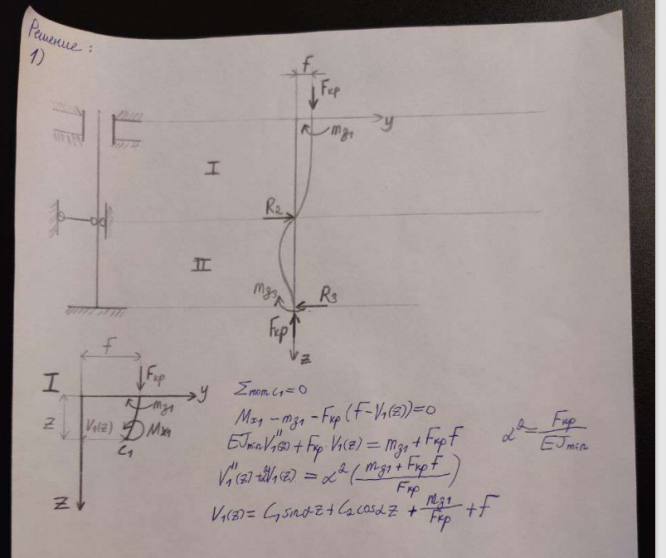 Решение:
1)
f
Fкр
y
mz1
I
R2
II
mz3
R3
Fкр
z
f
I
Fкр
y
mz1
z
V1(z)
Mx1
C1
z
Σmom c1 = 0
Mx1 - mz1 - Fкр (f - V1(z)) = 0
EJmin V1''(z) + Fкр · V1(z) = mz1 + Fкр f
α² = Fкр / EJmin
V1''(z) + α² V1(z) = α² ( (mz1 + Fкр f) / Fкр )
V1(z) = C1 sin αz + C2 cos αz + mz1 / Fкр + f